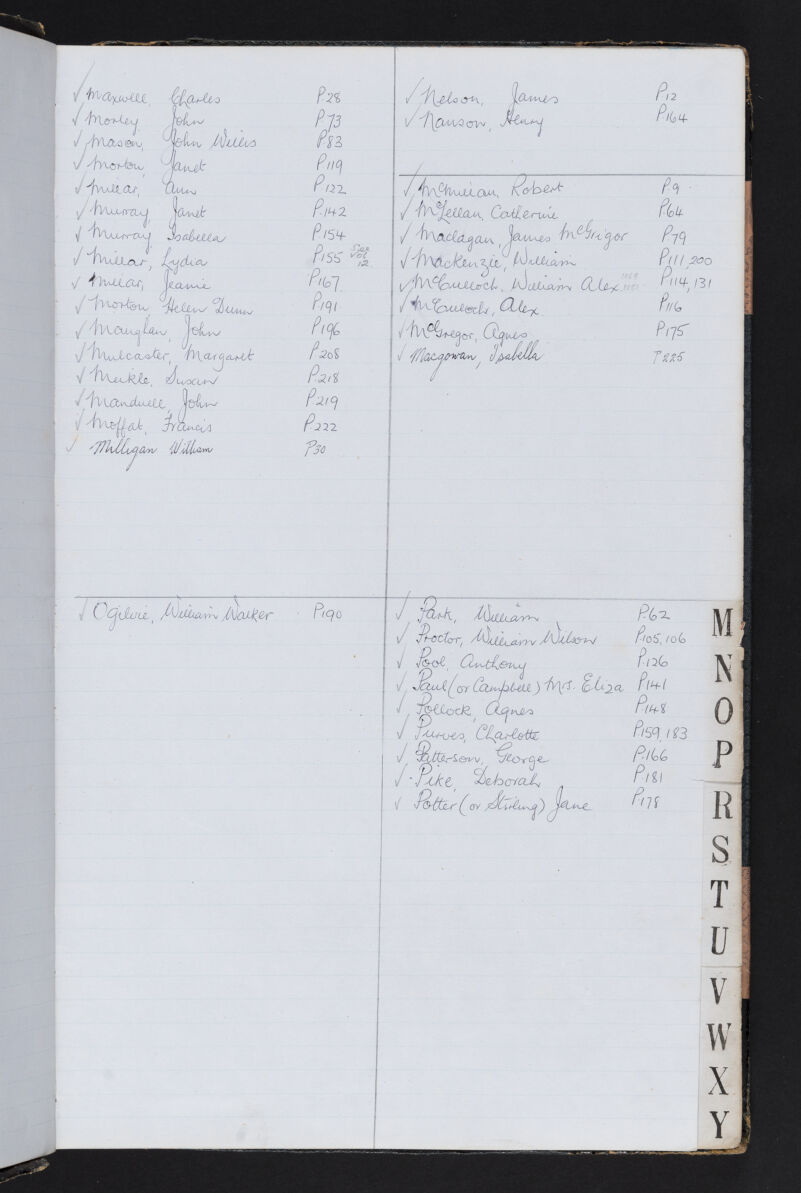 ✓ Maxwell, Charles P28
✓ Morley, John P73
✓ Mason, John Willis P83
✓ Morton, Janet P119
✓ Millar, Ann P122
✓ Murray Janet P.142
✓ Murray Isabella P154
✓ Millar, Lydia P155 See Vol 12
✓ Millar, Jeanie P167
✓ Morton, Helen Dunn P191
✓ Maughan, John P196
✓ Mulcaster, Margaret P208
✓ Meikle, Susan P218
✓ Manduell, John P219
✓ Moffat, Francis P222
✓ Milligan William P30
✓ Nelson, James P12
✓ Nanson, Henry P164
✓ McMillan, Robert P9
✓ McLellan, Catherine P64
✓ Maclagan, James McGrigor P79
✓ Mackenzie, William P111, 200
✓ McCulloch, William Alex P114, 131
✓ McCulloch, Alex. P116
✓ McGregor, Agnes P175
✓ Macgowan, Isabella P225
✓ Ogilvie, William Walker P190
✓ Park, William P.62
✓ Proctor, William Wilson P105, 106
✓ Pool, Anthony P126
✓ Paul (or Campbell) Mrs. Eliza P141
✓ Pollock, Agnes P148
✓ Purves, Charlotte P159, 183
✓ Patterson, George P.166
✓ Pike, Deborah P.181
✓ Potter (or Stirling) Jane P178
M
N
O
P
R
S
T
U
V
W
X
Y